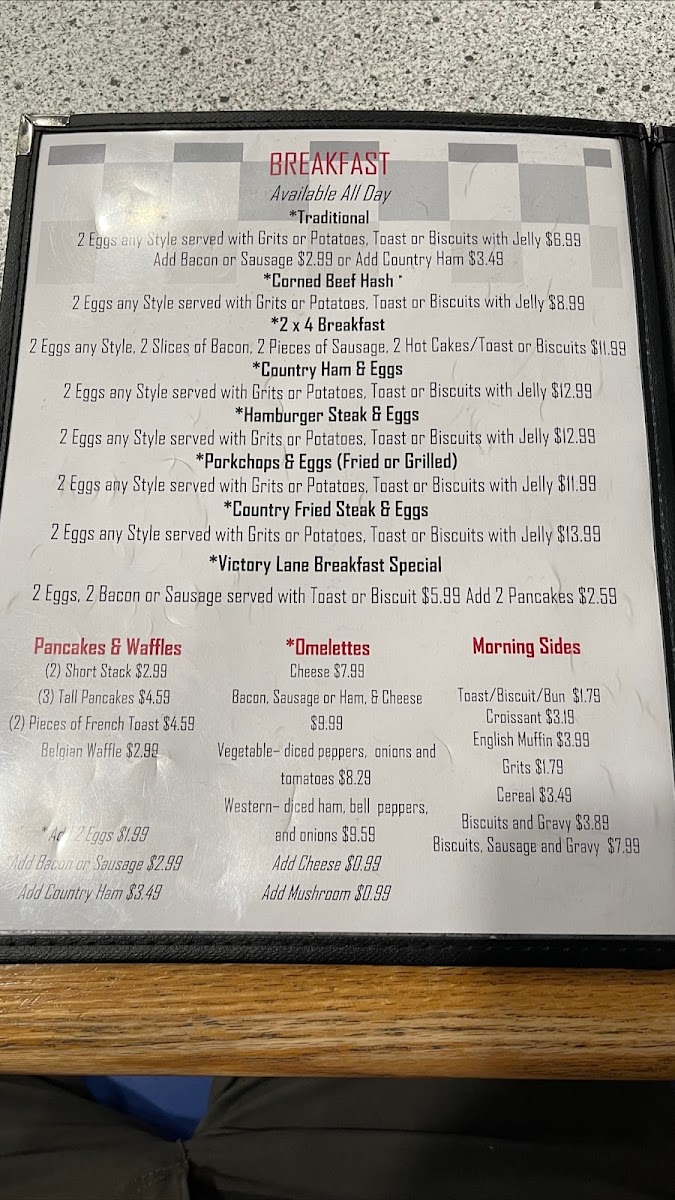 BREAKFAST
Available All Day
*Traditional
2 Eggs any Style served with Grits or Potatoes, Toast or Biscuits with Jelly $6.99
Add Bacon or Sausage $2.99 or Add Country Ham $3.49
*Corned Beef Hash *
2 Eggs any Style served with Grits or Potatoes, Toast or Biscuits with Jelly $8.99
*2 x 4 Breakfast
2 Eggs any Style, 2 Slices of Bacon, 2 Pieces of Sausage, 2 Hot Cakes/Toast or Biscuits $11.99
*Country Ham & Eggs
2 Eggs any Style served with Grits or Potatoes, Toast or Biscuits with Jelly $12.99
*Hamburger Steak & Eggs
2 Eggs any Style served with Grits or Potatoes, Toast or Biscuits with Jelly $12.99
*Porkchops & Eggs (Fried or Grilled)
2 Eggs any Style served with Grits or Potatoes, Toast or Biscuits with Jelly $11.99
*Country Fried Steak & Eggs
2 Eggs any Style served with Grits or Potatoes, Toast or Biscuits with Jelly $13.99
*Victory Lane Breakfast Special
2 Eggs, 2 Bacon or Sausage served with Toast or Biscuit $5.99 Add 2 Pancakes $2.59
Pancakes & Waffles
(2) Short Stack $2.99
(3) Tall Pancakes $4.59
(2) Pieces of French Toast $4.59
Belgian Waffle $2.99
* Add 2 Eggs $1.99
Add Bacon or Sausage $2.99
Add Country Ham $3.49
*Omelettes
Cheese $7.99
Bacon, Sausage or Ham, & Cheese
$9.99
Vegetable– diced peppers, onions and
tomatoes $8.29
Western– diced ham, bell peppers,
and onions $9.59
Add Cheese $0.99
Add Mushroom $0.99
Morning Sides
Toast/Biscuit/Bun $1.79
Croissant $3.19
English Muffin $3.99
Grits $1.79
Cereal $3.49
Biscuits and Gravy $3.89
Biscuits, Sausage and Gravy $7.99